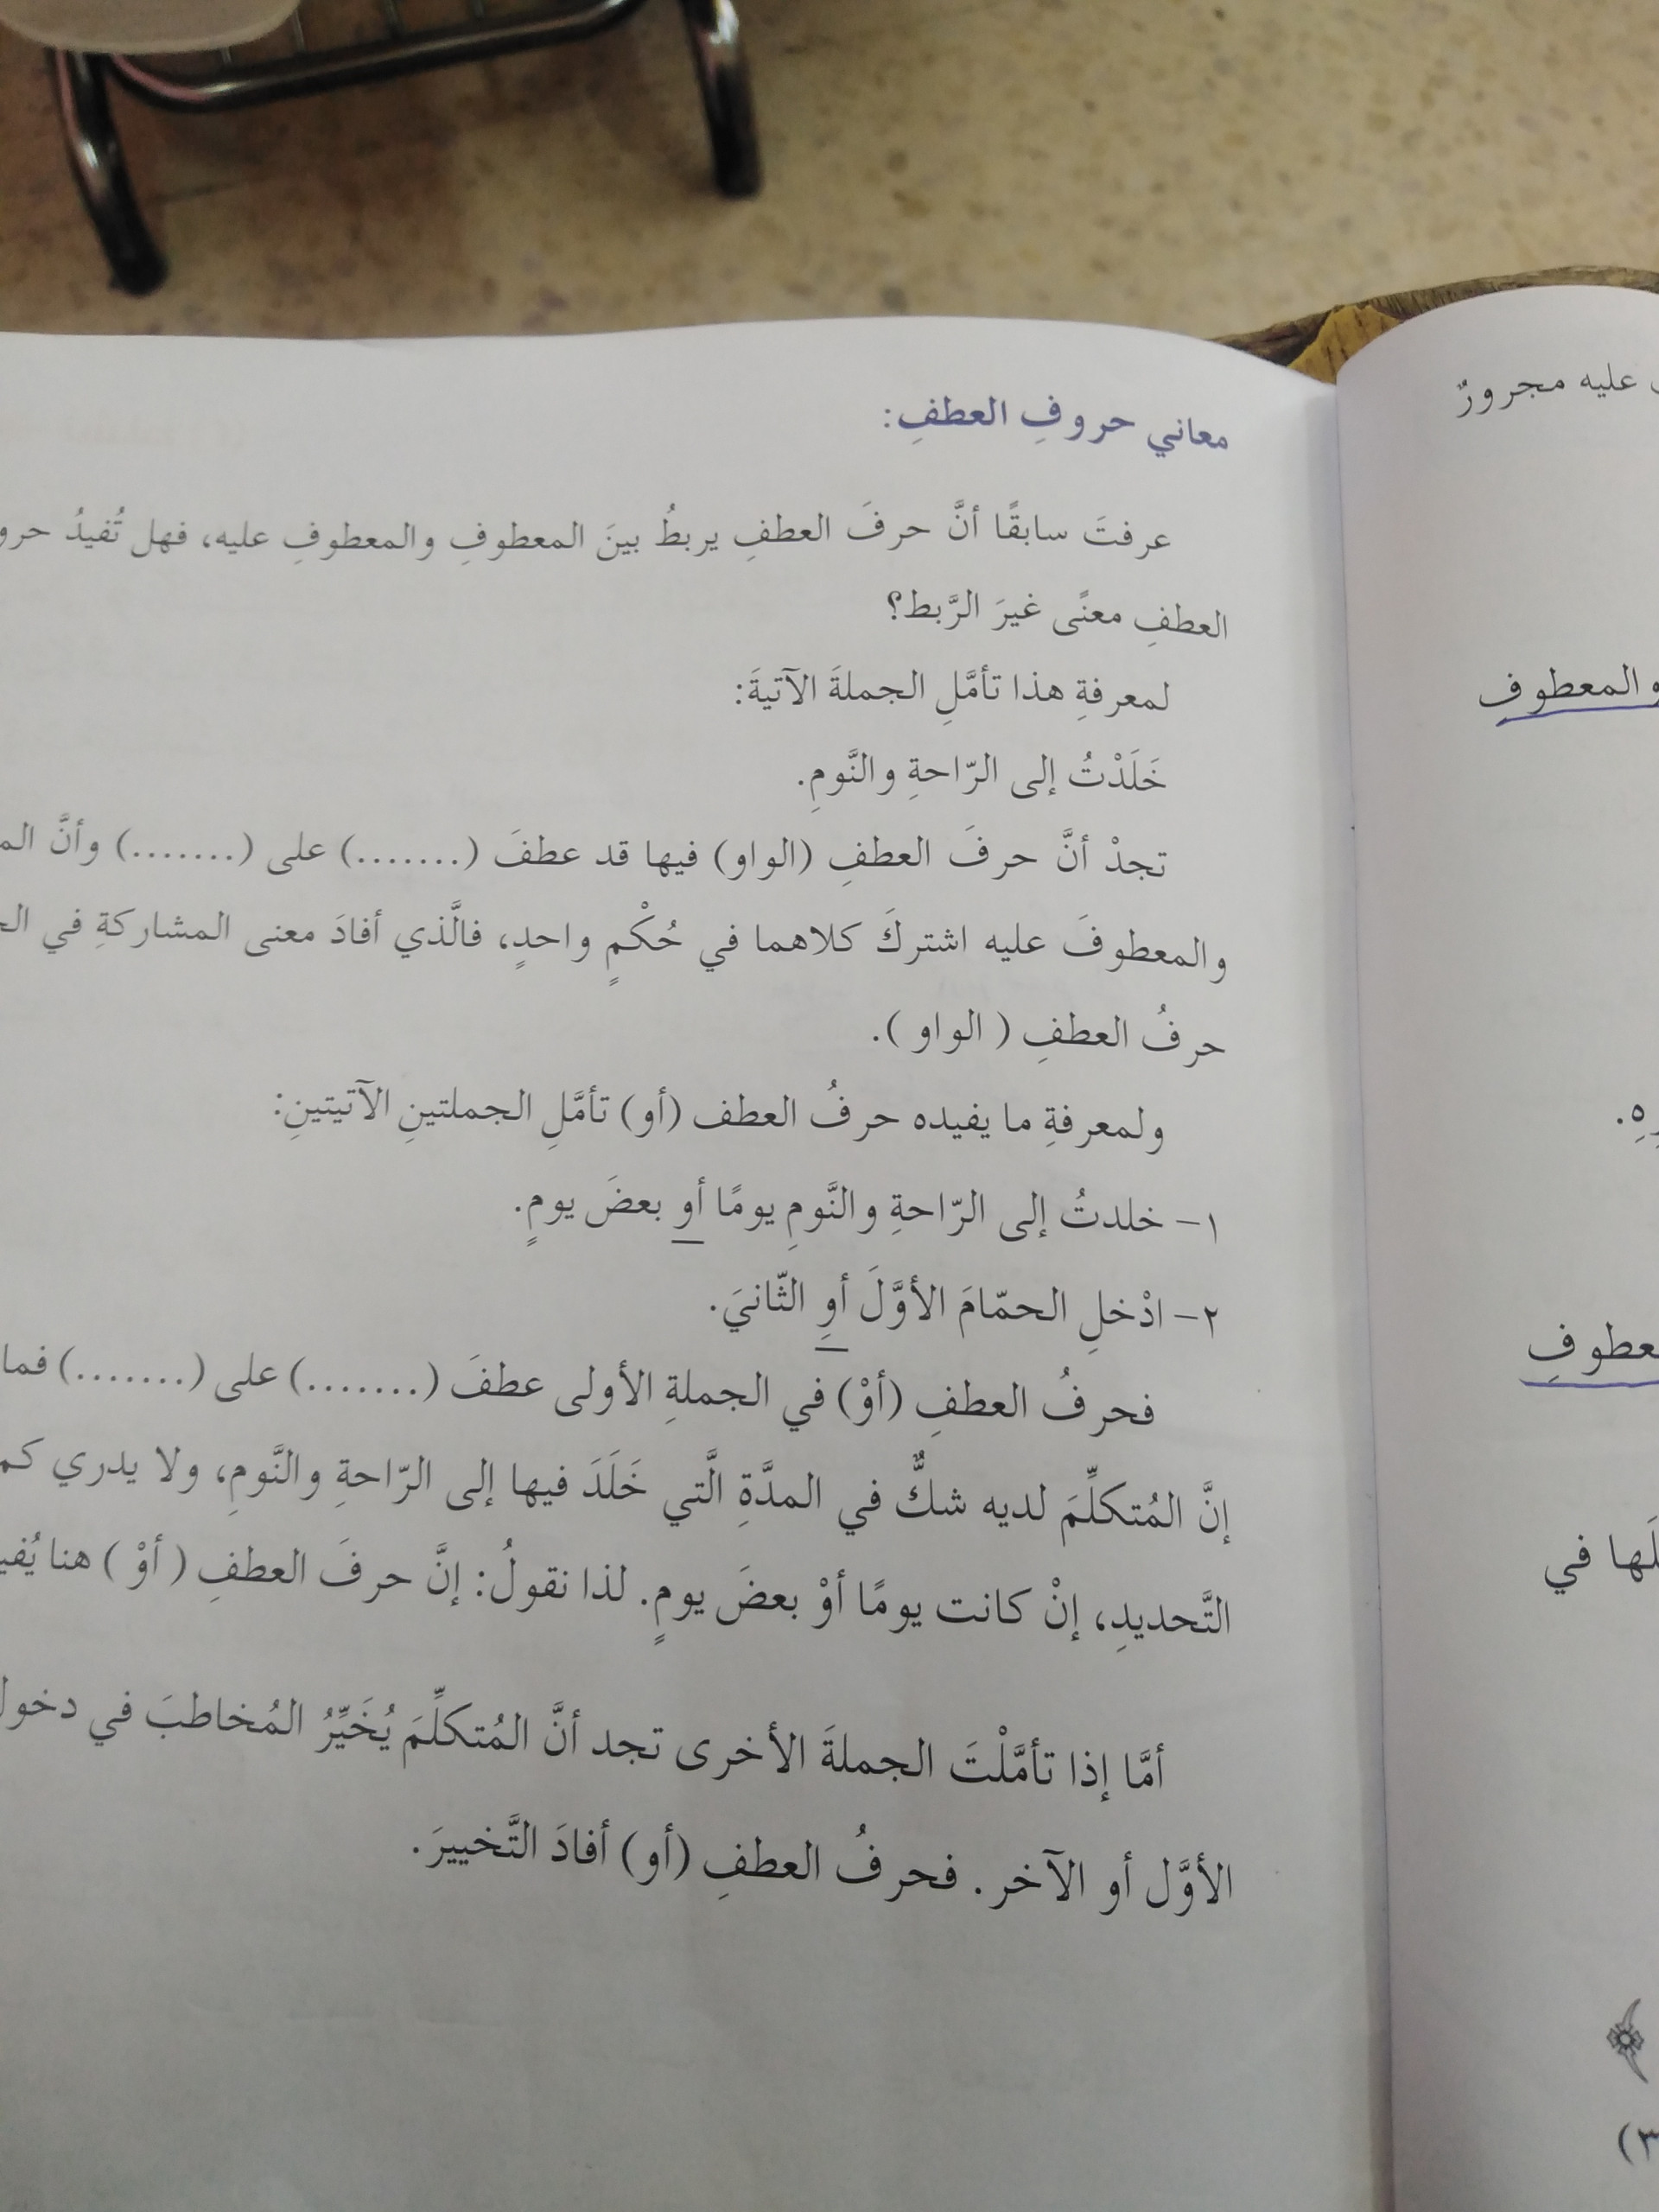 عليه مجرورٌ
والمعطوفِ
لَها في
معاني حروفِ العطفِ:
عرفتَ سابقًا أنَّ حرفَ العطفِ يربطُ بينَ المعطوفِ والمعطوفِ عليه، فهل تُفيدُ
العطفِ معنًى غيرَ الرَّبط؟
لمعرفةِ هذا تأمَّلِ الجملةَ الآتيةَ:
خَلَدْتُ إلى الرّاحةِ والنَّومِ.
تجدْ أنَّ حرفَ العطفِ (الواو) فيها قد عطفَ (.......) على (.......) وأنَّ
والمعطوفَ عليه اشتركَ كلاهما في حُكْمٍ واحدٍ، فالَّذي أفادَ معنى المشاركةِ في
حرفُ العطفِ ( الواو ).
ولمعرفةِ ما يفيده حرفُ العطف (أو) تأمَّلِ الجملتينِ الآتيتينِ:
١- خلدتُ إلى الرّاحةِ والنَّومِ يومًا أو بعضَ يومٍ.
٢- ادْخلِ الحمّامَ الأوَّلَ أوِ الثّانيَ.
فحرفُ العطفِ (أوْ) في الجملةِ الأولى عطفَ (.......) على (.......) فما
إنَّ المُتكلِّمَ لديه شكٌّ في المدَّةِ الَّتي خَلَدَ فيها إلى الرّاحةِ والنَّومِ، ولا يدري
التَّحديدِ، إنْ كانت يومًا أوْ بعضَ يومٍ. لذا نقولُ: إنَّ حرفَ العطفِ ( أوْ ) هنا
أمَّا إذا تأمَّلْتَ الجملةَ الأخرى تجد أنَّ المُتكلِّمَ يُخَيِّرُ المُخاطبَ في
الأوَّل أو الآخر. فحرفُ العطفِ (أو) أفادَ التَّخييرَ.